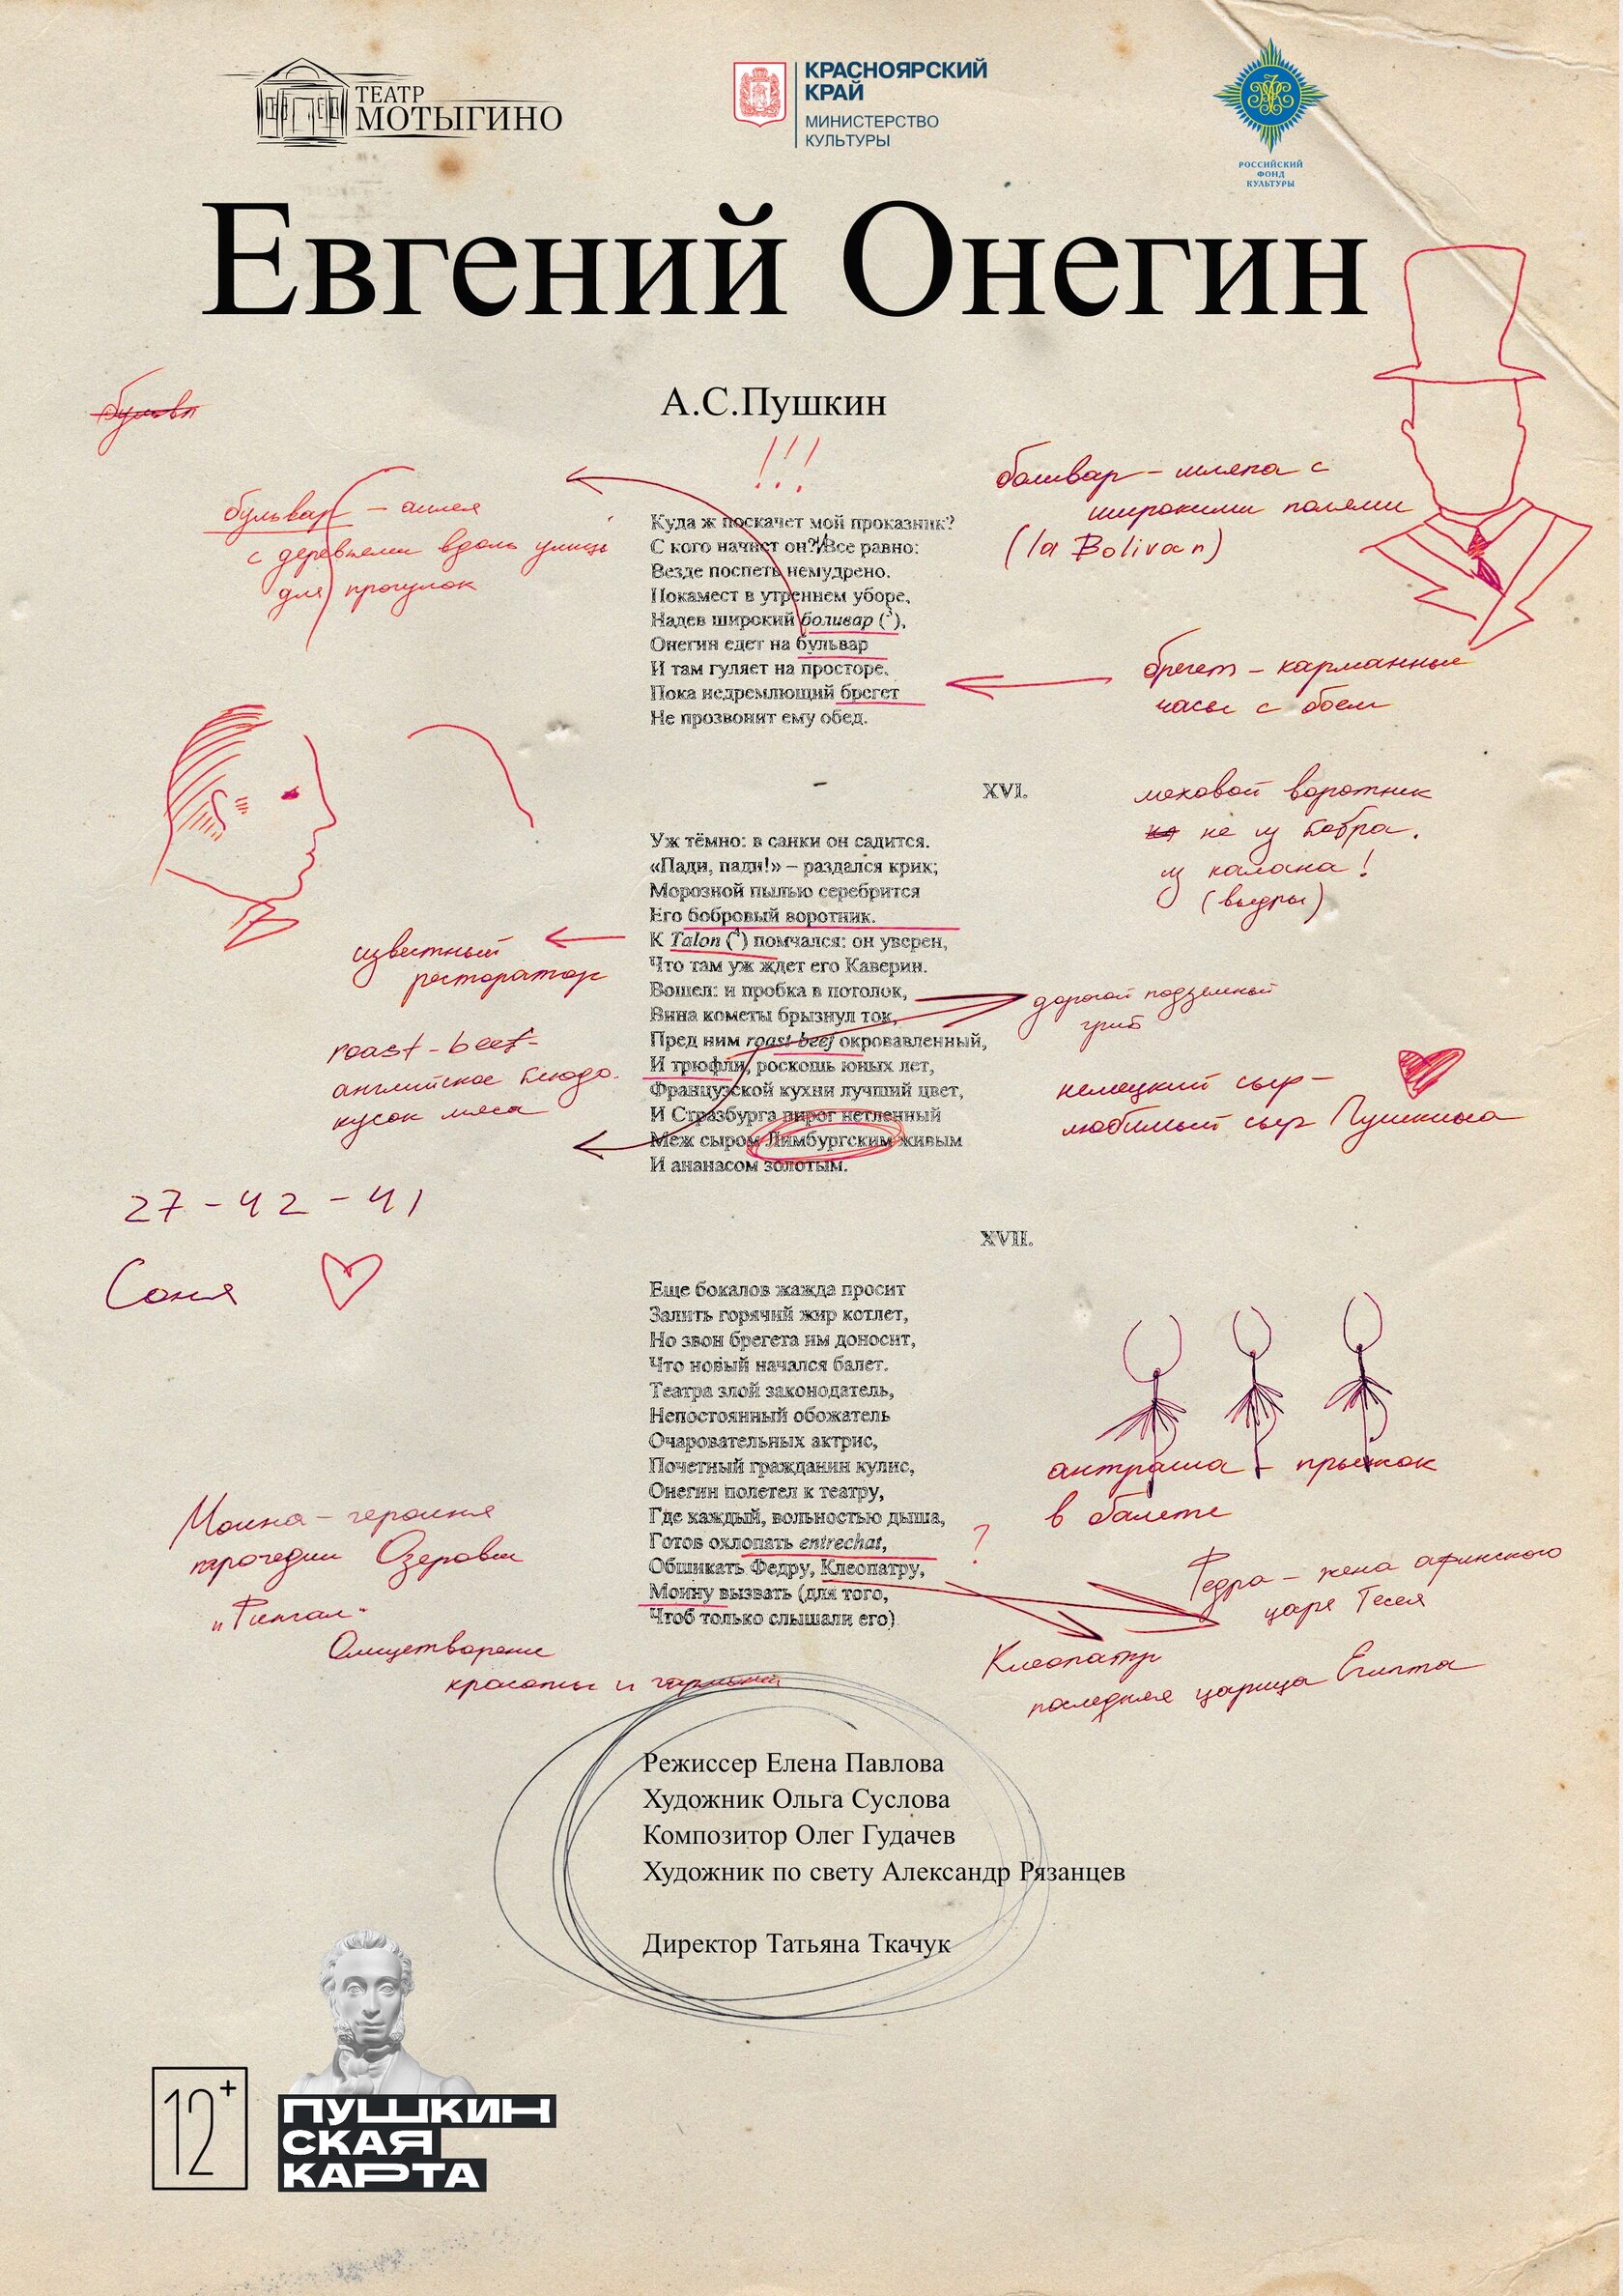 ТЕАТР
МОТЫГИНО
КРАСНОЯРСКИЙ
КРАЙ
МИНИСТЕРСТВО
КУЛЬТУРЫ
РОССИЙСКИЙ
ФОНД
КУЛЬТУРЫ
Евгений Онегин
А.С.Пушкин
!!!
бульвар – аллея
с деревьями вдоль улицы
для прогулок
боливар – шляпа с
широкими полями
(la Bolivar)
Куда ж поскачет мой проказник?
С кого начнет он? Все равно:
Везде поспеть немудрено.
Покамест в утреннем уборе,
Надев широкий боливар (3),
Онегин едет на бульвар
И там гуляет на просторе,
Пока недремлющий брегет
Не прозвонит ему обед.
брегет – карманные
часы с боем
XVI.
меховой воротник
не из бобра,
из калана!
(выдры)
Уж тёмно: в санки он садится.
«Пади, пади!» – раздался крик;
Морозной пылью серебрится
Его бобровый воротник.
К Talon (4) помчался: он уверен,
Что там уж ждет его Каверин.
Вошел: и пробка в потолок,
Вина кометы брызнул ток,
Пред ним roast-beef окровавленный,
И трюфли, роскошь юных лет,
Французской кухни лучший цвет,
И Стразбурга пирог нетленный
Меж сыром Лимбургским живым
И ананасом золотым.
известный
ресторатор
дорогой подземный
гриб
roast-beef-
английское блюдо.
кусок мяса
немецкий сыр –
любимый сыр Пушкина
27-42-41
Соня
XVII.
Еще бокалов жажда просит
Залить горячий жир котлет,
Но звон брегета им доносит,
Что новый начался балет.
Театра злой законодатель,
Непостоянный обожатель
Очаровательных актрис,
Почетный гражданин кулис,
Онегин полетел к театру,
Где каждый, вольностью дыша,
Готов охлопать entrechat,
Обшикать Федру, Клеопатру,
Моину вызвать (для того,
Чтоб только слышали его).
антраша – прыжок
в балете
?
Федра – жена афинского
царя Тесея
Клеопатр
последняя царица Египта
Моина – героиня
трагедии Озерова
„Фингал"
Олицетворение
красоты и гармонии
Режиссер Елена Павлова
Художник Ольга Суслова
Композитор Олег Гудачев
Художник по свету Александр Рязанцев
Директор Татьяна Ткачук
12+
ПУШКИН
СКАЯ
КАРТА